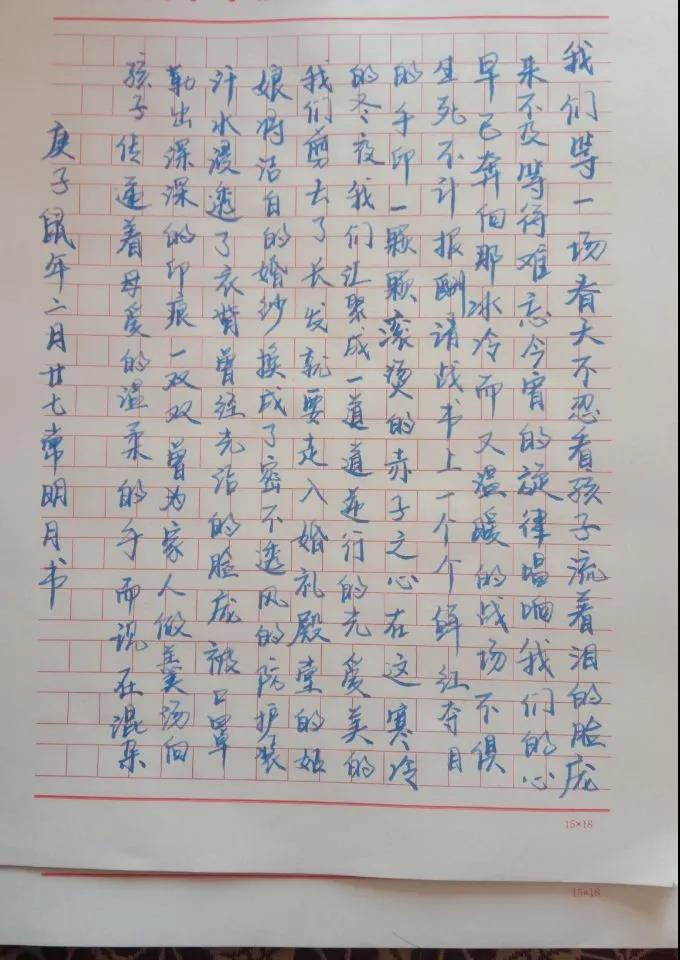 我们等一场看大不忍看孩子流着泪的脸庞
来不及等待难忘今宵的旋律唱响我们的心
早已奔向那冰冷而又温暖的战场不惧
生死不计报酬请战书上一个个鲜红夺目
的手印一颗颗滚烫的赤子之心在这寒冷
的冬夜我们汇聚成一道道逆行的光爱美的
我们剪去了长发就要走入婚礼殿堂的姑
娘将洁白的婚纱换成了密不透风的防护装
汗水浸透了衣背曾经光洁的脸庞被口罩
勒出深深的印痕一双双曾为家人做羹汤向
孩子传递着母爱的温柔的手而现在混杂
庚子鼠年二月廿七常明月书
15×18
15×18